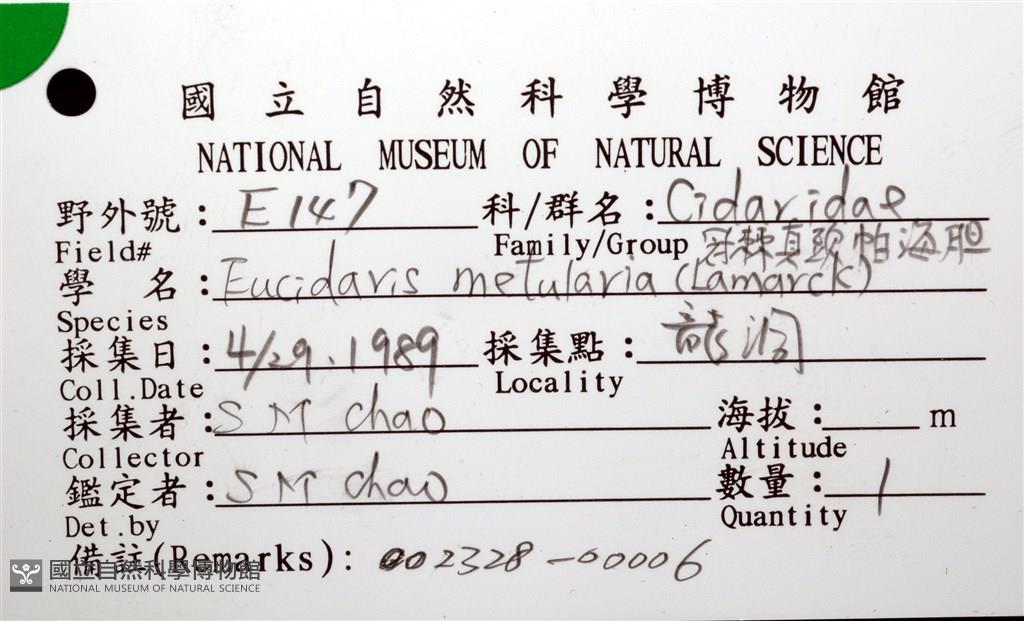 國立自然科學博物館
NATIONAL MUSEUM OF NATURAL SCIENCE
野外號: E147 科/群名: Cidaridae
Field# Family/Group 冠棘真頭帕海胆
學名: Eucidaris metularia (Lamarck)
Species
採集日: 4/29.1989 採集點: 龍洞
Coll.Date Locality
採集者: S M Chao 海拔: m
Collector Altitude
鑑定者: S M Chao 數量: 1
Det.by Quantity
備註(Remarks): 002328-00006
國立自然科學博物館
NATIONAL MUSEUM OF NATURAL SCIENCE